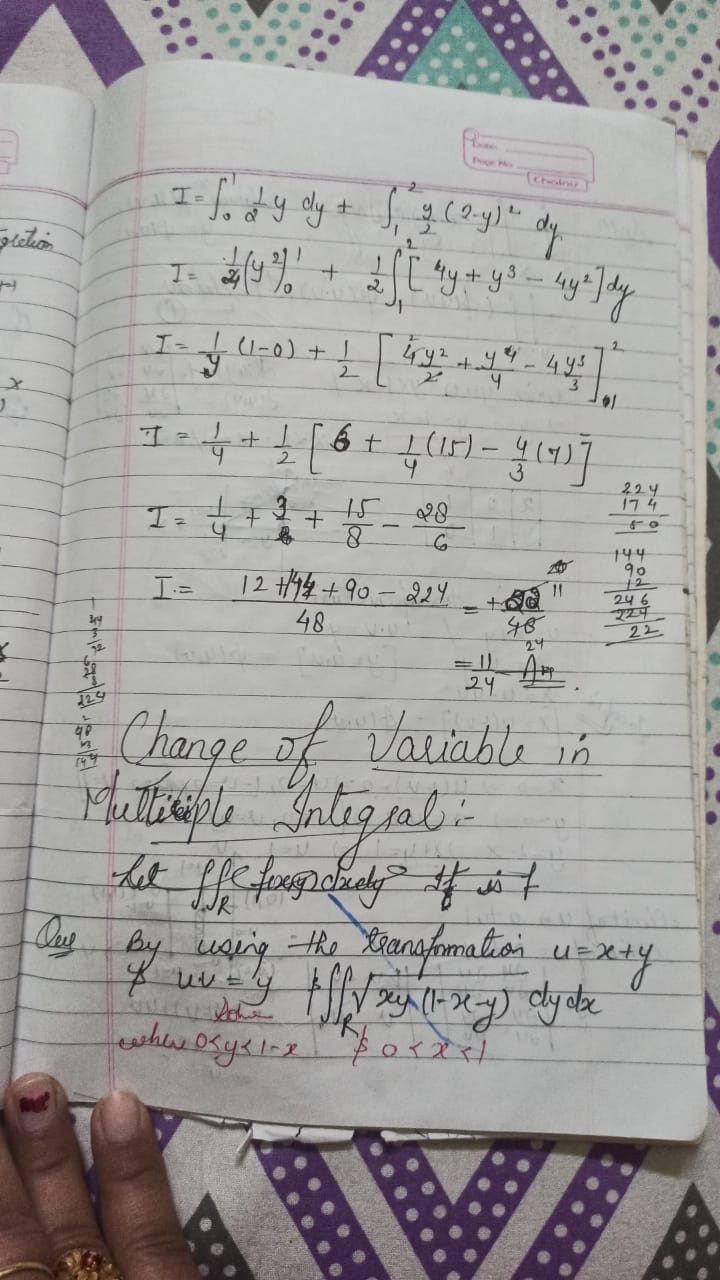 Date
Page No.
I = ∫₀¹ 1/2 y dy + ∫₁² y/2 (2-y)² dy
I = 1/4 (y²)₀¹ + 1/2 ∫₁² [4y + y³ - 4y²] dy
I = 1/4 (1-0) + 1/2 [4y²/2 + y⁴/4 - 4y³/3]₁²
I = 1/4 + 1/2 [6 + 1/4 (15) - 4/3 (7)]
I = 1/4 + 3 + 15/8 - 28/6
I = (12 + 144 + 90 - 224)/48 = + 22/48 11/24
= 11/24 Ans.
224
174
50
144
90
12
246
224
22
Change of Variable in
Multiple Integral :-
Let ∫∫R f(x,y) dxdy If is f
Que By using the transformation u = x+y
& uv = y ∫∫R √xy (1-x-y) dy dx
where 0<y<1-x & 0<x<1